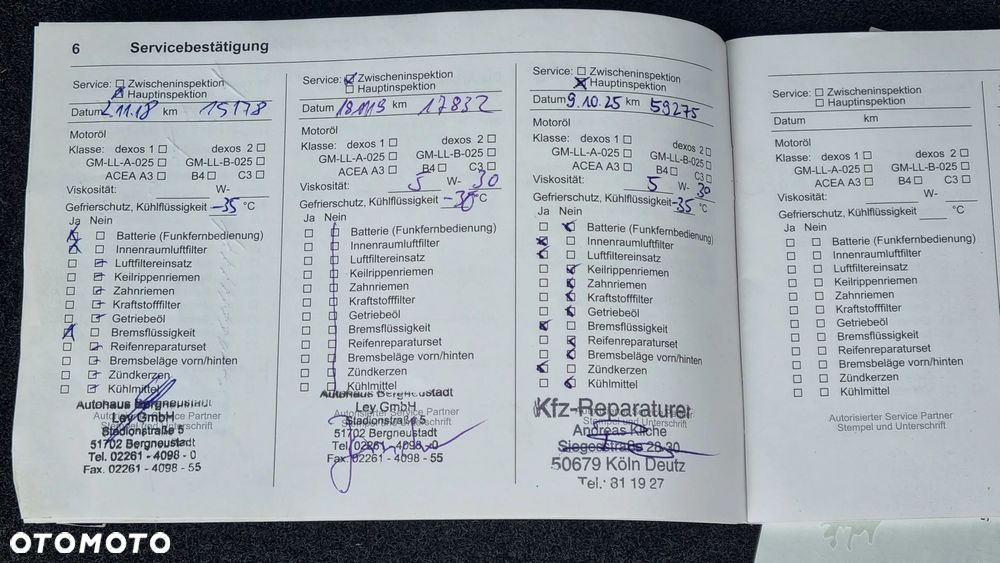 6 Servicebestätigung
Service: Zwischeninspektion
Hauptinspektion
Datum 2.11.18 km 15178
Motoröl
Klasse: dexos 1 dexos 2
GM-LL-A-025 GM-LL-B-025
ACEA A3 B4 C3
Viskosität: W-
Gefrierschutz, Kühlflüssigkeit -35 °C
Ja Nein
Batterie (Funkfernbedienung)
Innenraumluftfilter
Luftfiltereinsatz
Keilrippenriemen
Zahnriemen
Kraftstofffilter
Getriebeöl
Bremsflüssigkeit
Reifenreparaturset
Bremsbeläge vorn/hinten
Zündkerzen
Kühlmittel
Autohaus Bergneustadt
Autorisierter Service Partner
Ley GmbH
Stempel und Unterschrift
Stadionstraße 5
51702 Bergneustadt
Tel. 02261 - 4098 - 0
Fax. 02261 - 4098 - 55
Service: Zwischeninspektion
Hauptinspektion
Datum km 17832
Motoröl
Klasse: dexos 1 dexos 2
GM-LL-A-025 GM-LL-B-025
ACEA A3 B4 C3
Viskosität: 5 W- 30
Gefrierschutz, Kühlflüssigkeit -35 °C
Ja Nein
Batterie (Funkfernbedienung)
Innenraumluftfilter
Luftfiltereinsatz
Keilrippenriemen
Zahnriemen
Kraftstofffilter
Getriebeöl
Bremsflüssigkeit
Reifenreparaturset
Bremsbeläge vorn/hinten
Zündkerzen
Kühlmittel
Autohaus Bergneustadt
Ley GmbH
Autorisierter Service Partner
Stadionstraße 5
Stempel und Unterschrift
51702 Bergneustadt
Tel. 02261 - 4098 - 0
Fax. 02261 - 4098 - 55
Service: Zwischeninspektion
Hauptinspektion
Datum 9.10.25 km 59275
Motoröl
Klasse: dexos 1 dexos 2
GM-LL-A-025 GM-LL-B-025
ACEA A3 B4 C3
Viskosität: 5 W- 30
Gefrierschutz, Kühlflüssigkeit -35 °C
Ja Nein
Batterie (Funkfernbedienung)
Innenraumluftfilter
Luftfiltereinsatz
Keilrippenriemen
Zahnriemen
Kraftstofffilter
Getriebeöl
Bremsflüssigkeit
Reifenreparaturset
Bremsbeläge vorn/hinten
Zündkerzen
Kühlmittel
Kfz-Reparaturen
Autorisierter Service Partner
Stempel und Unterschrift
Andreas
28-30
50679 Köln Deutz
Tel.: 81 19 27
Service: Zwischeninspektion
Hauptinspektion
Datum km
Motoröl
Klasse: dexos 1 dexos 2
GM-LL-A-025 GM-LL-B-025
ACEA A3 B4 C3
Viskosität: W-
Gefrierschutz, Kühlflüssigkeit °C
Ja Nein
Batterie (Funkfernbedienung)
Innenraumluftfilter
Luftfiltereinsatz
Keilrippenriemen
Zahnriemen
Kraftstofffilter
Getriebeöl
Bremsflüssigkeit
Reifenreparaturset
Bremsbeläge vorn/hinten
Zündkerzen
Kühlmittel
Autorisierter Service Partner
Stempel und Unterschrift
OTOMOTO